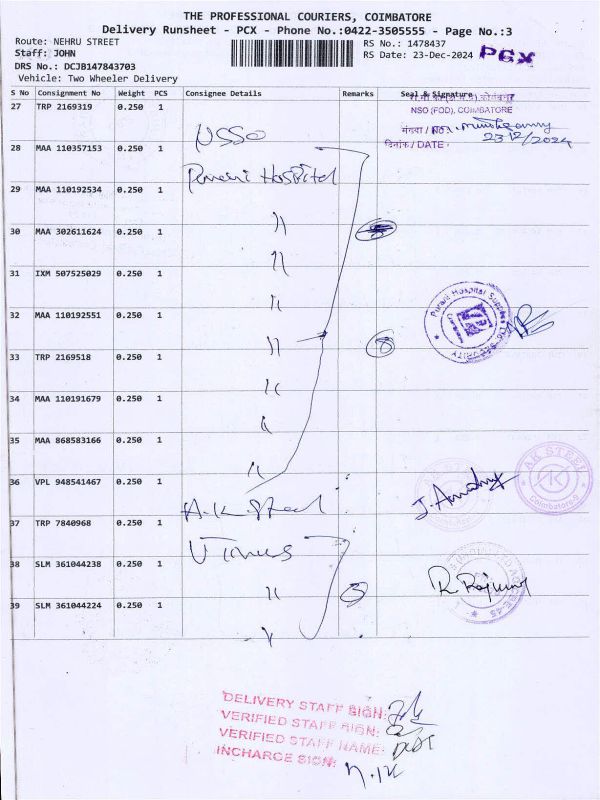 THE PROFESSIONAL COURIERS, COIMBATORE
Delivery Runsheet - PCX - Phone No.:0422-3505555 - Page No.:3
Route: NEHRU STREET
RS No.: 1478437
PCX
Staff: JOHN
RS Date: 23-Dec-2024
DRS No.: DCJB147843703
Vehicle: Two Wheeler Delivery
S No Consignment No Weight PCS Consignee Details Remarks Seal & Signature
27 TRP 2169319 0.250 1
NSO (FOD), COIMBATORE
दिनांक / DATE - 23/12/2024
28 MAA 110357153 0.250 1
Hospital
29 MAA 110192534 0.250 1
"
30 MAA 302611624 0.250 1
"
31 IXM 507525029 0.250 1
"
32 MAA 110192551 0.250 1
Purani Hospital Supplies
SECURITY
"
33 TRP 2169518 0.250 1
8
"
34 MAA 110191679 0.250 1
"
35 MAA 868583166 0.250 1
"
36 VPL 948541467 0.250 1
A.K Steel
AK STEEL
AK
Coimbatore-9
37 TRP 7840968 0.250 1
38 SLM 361044238 0.250 1
"
3
39 SLM 361044224 0.250 1
"
DELIVERY STAFF SIGN:
VERIFIED STAFF SIGN:
VERIFIED STAFF NAME:
INCHARGE SIGN: